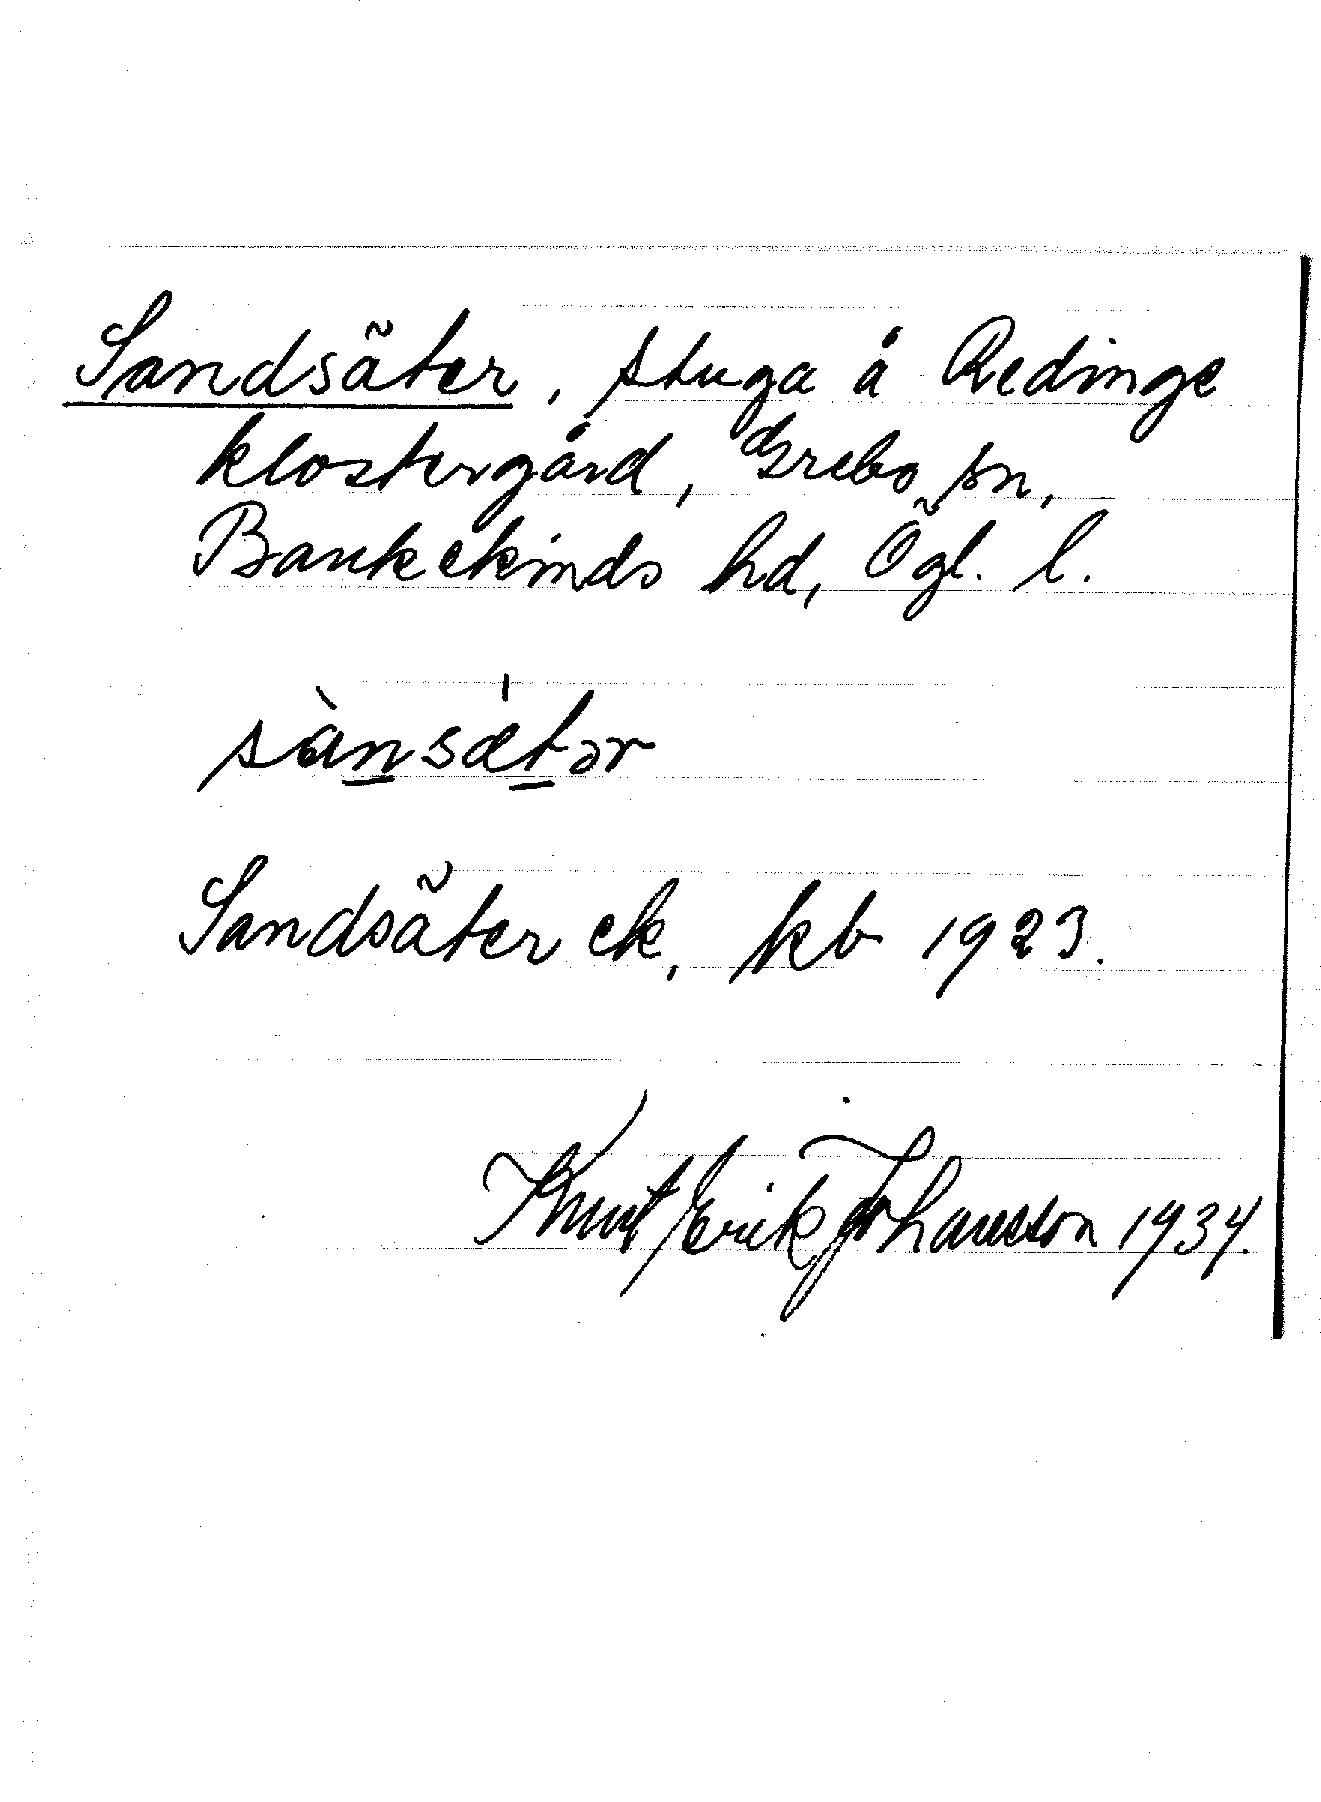 Sandsäter, stuga å Redinge
klostergård, Grebo sn,
Bankekinds hd, Ögl. l.
sànsæ̍tər
Sandsäter ek, kb 1923.
Knut Erik Johansson 1934.